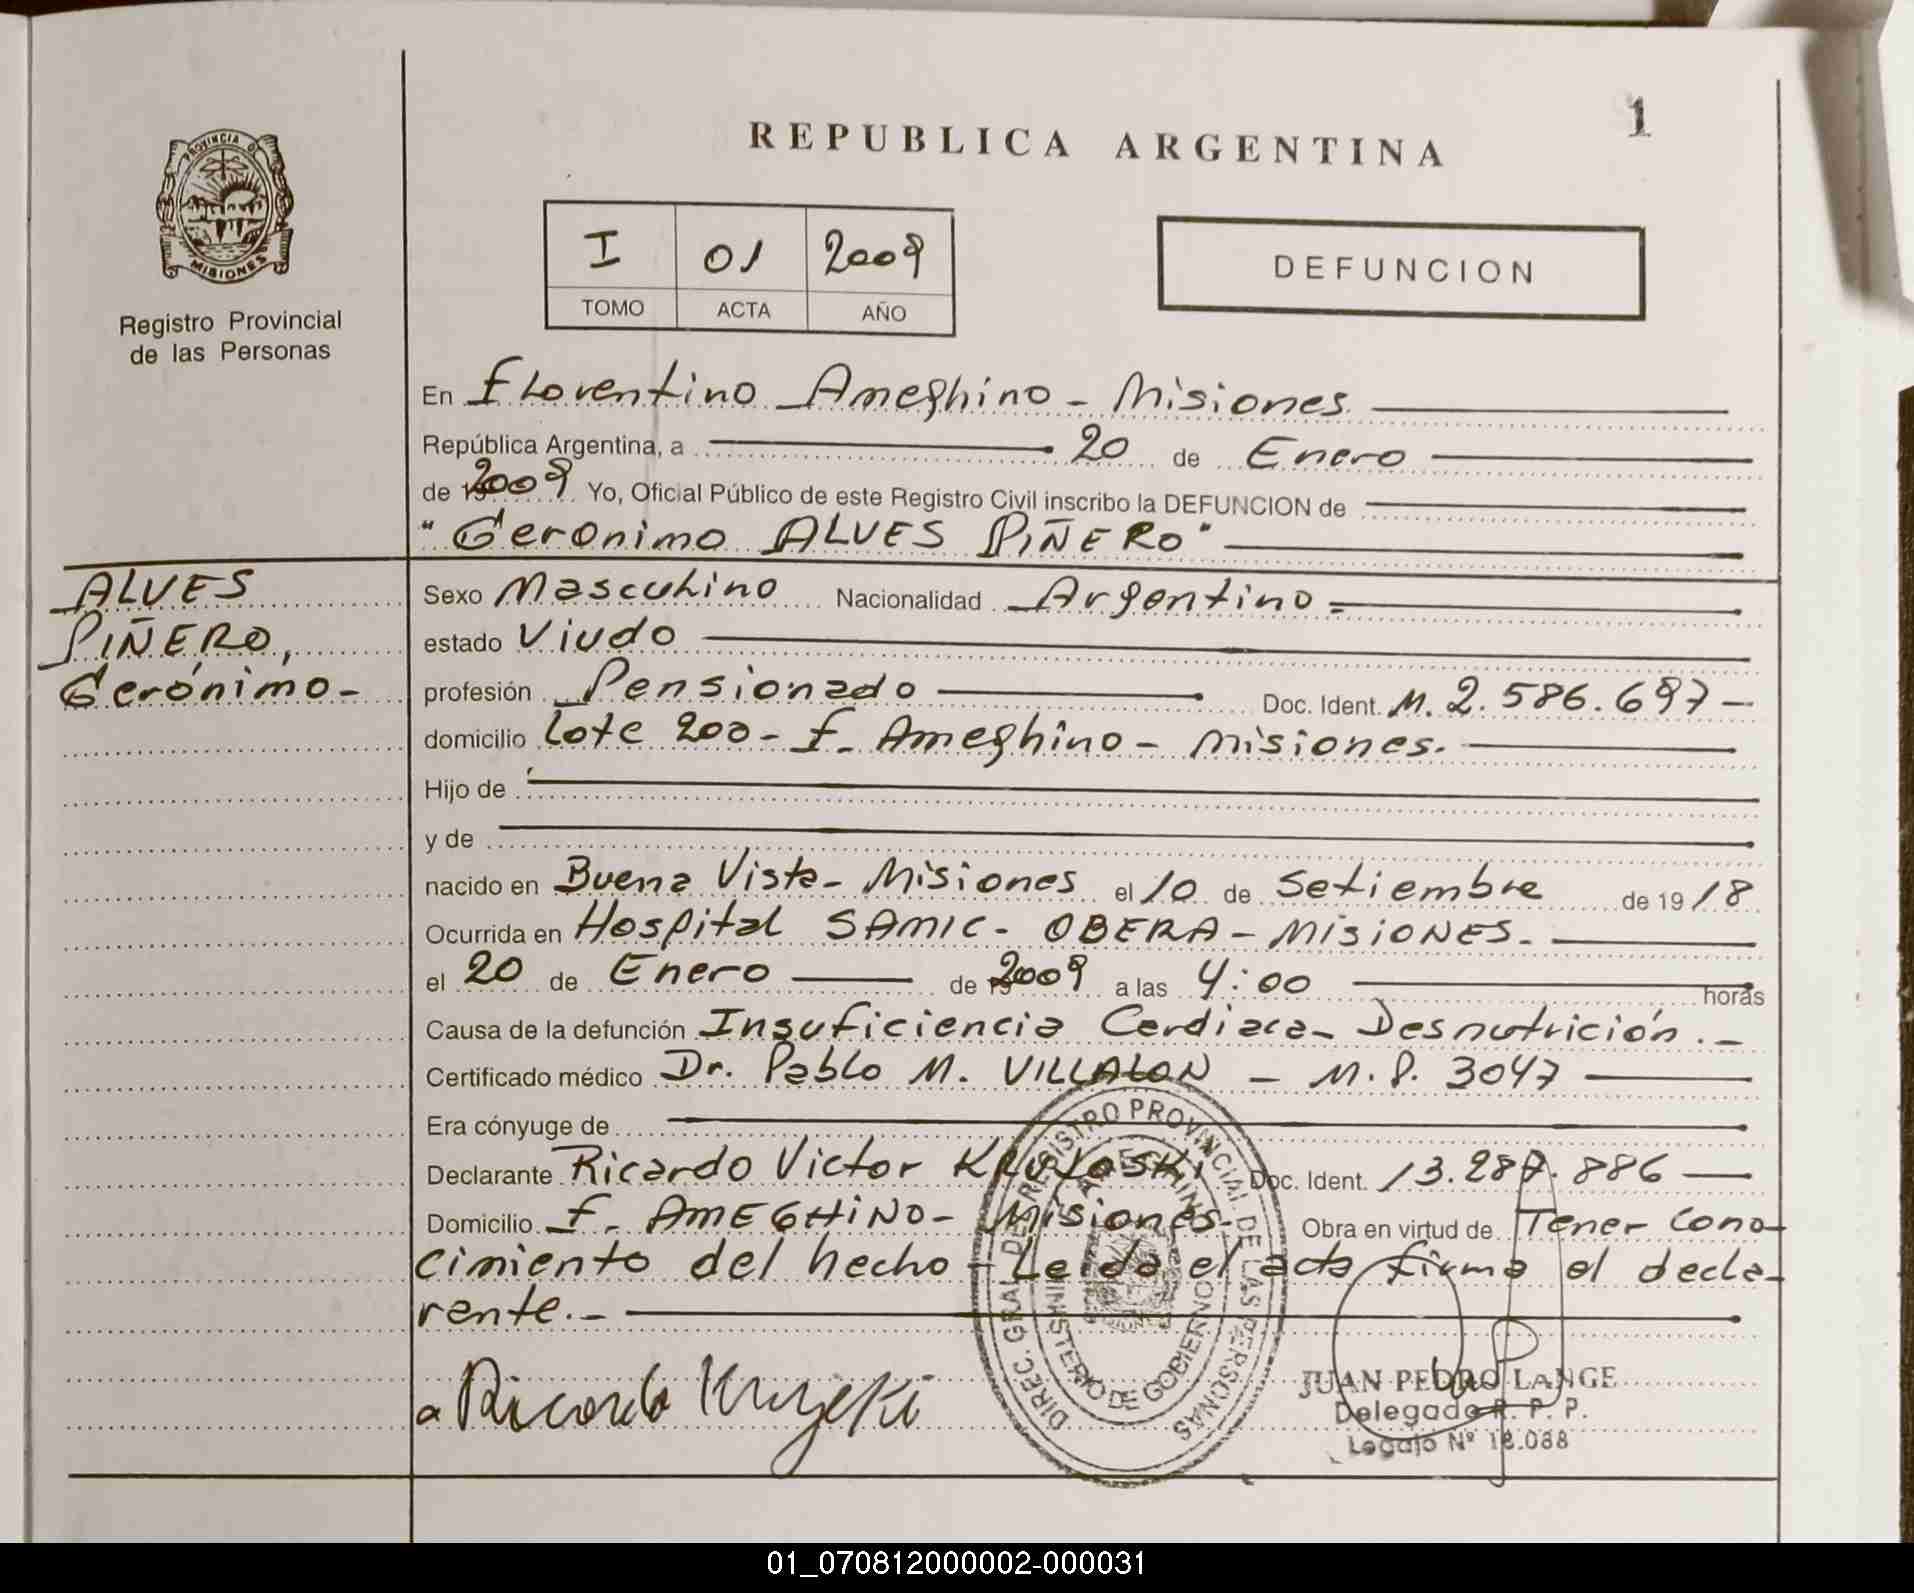 1
REPUBLICA ARGENTINA
PROVINCIA DE
MISIONES
Registro Provincial
de las Personas
I 01 2009
TOMO ACTA AÑO
DEFUNCION
En Florentino Ameghino - Misiones
República Argentina, a 20 de Enero
de 2009 Yo, Oficial Público de este Registro Civil inscribo la DEFUNCION de
"Geronimo ALVES PIÑERO"
ALVES
PIÑERO,
Gerónimo-
Sexo Masculino Nacionalidad Argentino =
estado Viudo
profesión Pensionado Doc. Ident. M. 2.586.697 -
domicilio Lote 200 - F. Ameghino - Misiones.
Hijo de
y de
nacido en Buena Vista - Misiones el 10 de Setiembre de 1918
Ocurrida en Hospital SAMIC - OBERA - MISIONES.
el 20 de Enero de 2009 a las 4:00 horas
Causa de la defunción Insuficiencia Cardiaca - Desnutrición.-
Certificado médico Dr. Pablo M. VILLALON - M.P. 3047
Era cónyuge de
Declarante Ricardo Victor Doc. Ident. 13.287.886
Domicilio F. AMEGHINO - Misiones. Obra en virtud de Tener cono-
cimiento del hecho - Leida el acta firma el decla-
rante.-
DIREC. GRAL. DE REGISTRO PROVINCIAL DE LAS PERSONAS
MINISTERIO DE GOBIERNO
Ricardo
JUAN PEDRO LANGE
Delegado R. P. P.
Legajo Nº 18.088
01_070812000002-000031